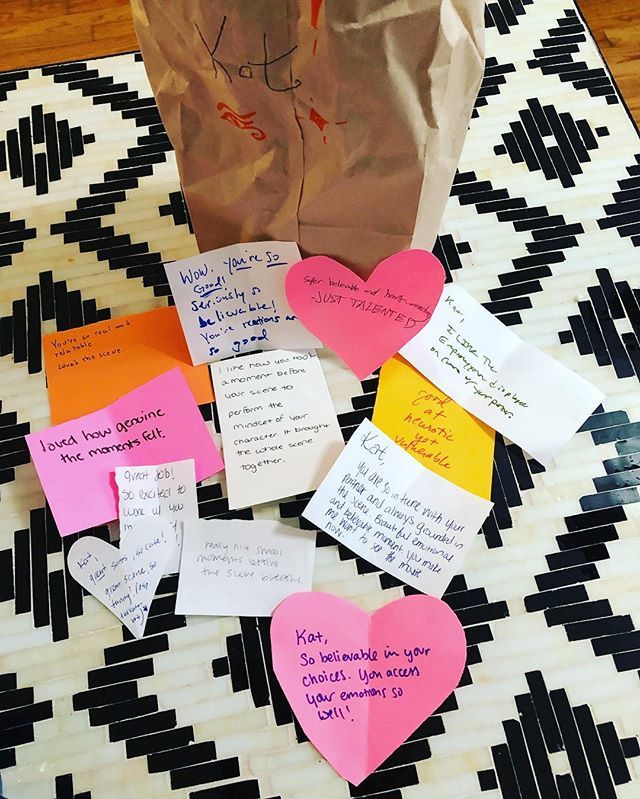 Kat
WOW. You're so
Good!
Seriously so
believable!
You're reactions are
so good
super believable and heart-
-JUST TALENTED
Kat,
I like the
You're so real and
relatable.
Loved the scene.
I like how you took
a moment before
your scene to
perform the
mindset of your
character it brought
the whole scene
together.
at
neurotic
yet
vulnerable
loved how genuine
the moments felt.
Kat,
You are so in tune with your
partner and always grounded in
the scene. Beautiful emotional
and believable moment. You make
me want to see the movie
now.
great job!
So excited to
work w/ you
in
Kat
great scene so
funny!
really nice small
moments letting
the scene breathe.
Kat,
So believable in your
choices. You access
your emotions so
well!